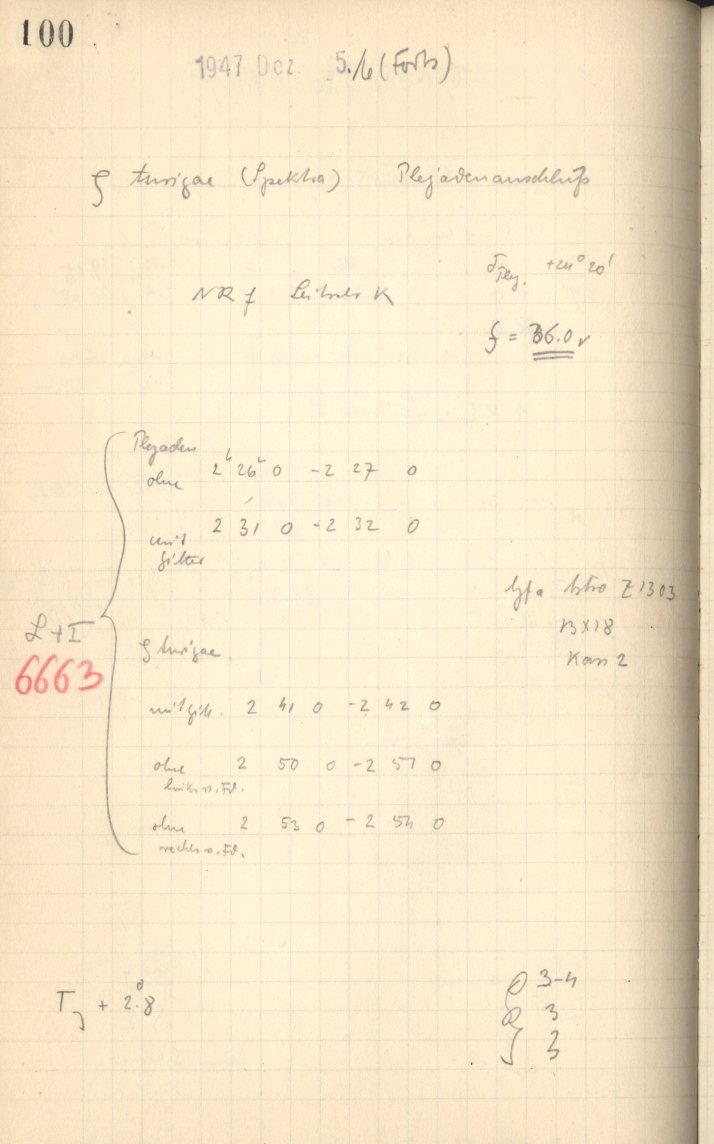 100
1947 Dez. 5./6 (Forts)
ζ Aurigae (Spektra) Plejadenanschluß
NR f Leitrohr K
δ Plej. +24° 20'
f = 36.0 v
Plejaden
ohne 2 h 26 m 0 - 2 27 0
mit 2 31 0 - 2 32 0
Gitter
Agfa Astro Z 1303
13 X 18
Kass 2
L + I
6663
ζ Aurigae
mit Gitt. 2 41 0 - 2 42 0
ohne 2 50 0 - 2 51 0
links v. Fd.
ohne 2 53 0 - 2 54 0
rechts v. Fd.
T + 2.8
3-4
3
3